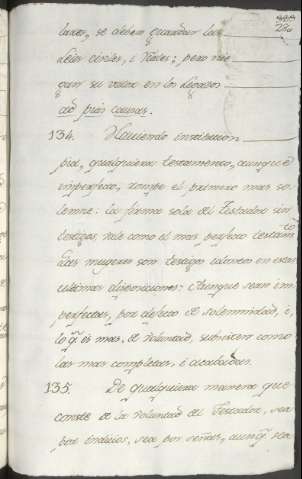 280
lares, se deben guardar las
Leies civiles, i Reales; pero nie-
gan su valor en los Legados
ad pias causas.
134. Haviendo institucion
pia, qualquiera testamento, aunque
imperfecto, rompe el primero mas so-
lemne: la firma sola del Testador sin
testigos, vale como el mas perfecto testamto
Las mugeres son testigos idoneos en estas
ultimas disposiciones: Aunque sean im-
perfectas, por defecto de solemnidad, i,
lo q es mas, de voluntad, subsisten como
las mas completas, i acabadas.
135. De qualquiera manera que
conste de la voluntad del Testador, sea
por indicios, sea por señas, aunq sea